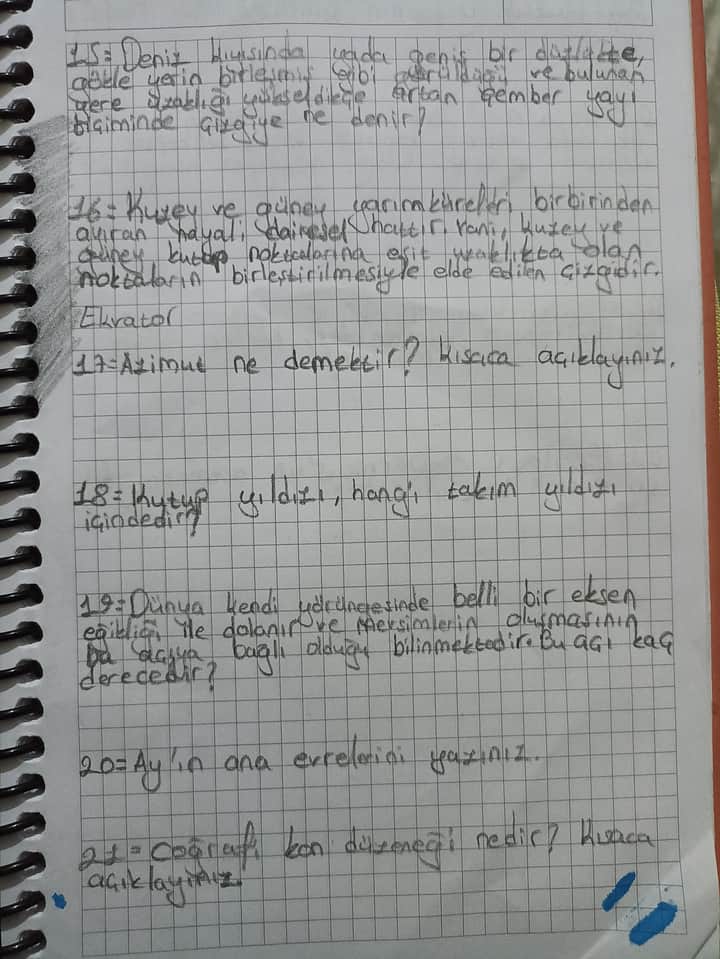 15= Deniz kıyısında yada geniş bir düzlükte,
gökle yerin birleşmiş gibi göründüğü ve bulunan
yere uzaklığı yükseldikçe artan çember yayı
biçiminde çizgiye ne denir?
16= Kuzey ve güney yarımküreleri birbirinden
ayıran hayali, dairesel hattır, yani, kuzey ve
güney kutup noktalarına eşit uzaklıkta olan
noktaların birleştirilmesiyle elde edilen çizgidir.
Ekvator
17= Azimut ne demektir? Kısaca açıklayınız.
18= Kutup yıldızı, hangi takım yıldızı
içindedir?
19= Dünya kendi yörüngesinde belli bir eksen
eğikliği ile dolanır ve meksimlerin oluşmasının
bu açıya bağlı olduğu bilinmektedir. Bu açı kaç
derecedir?
20= Ay'ın ana evrelerini yazınız.
21= Coğrafi kon düzeneği nedir? Kısaca
açıklayınız.